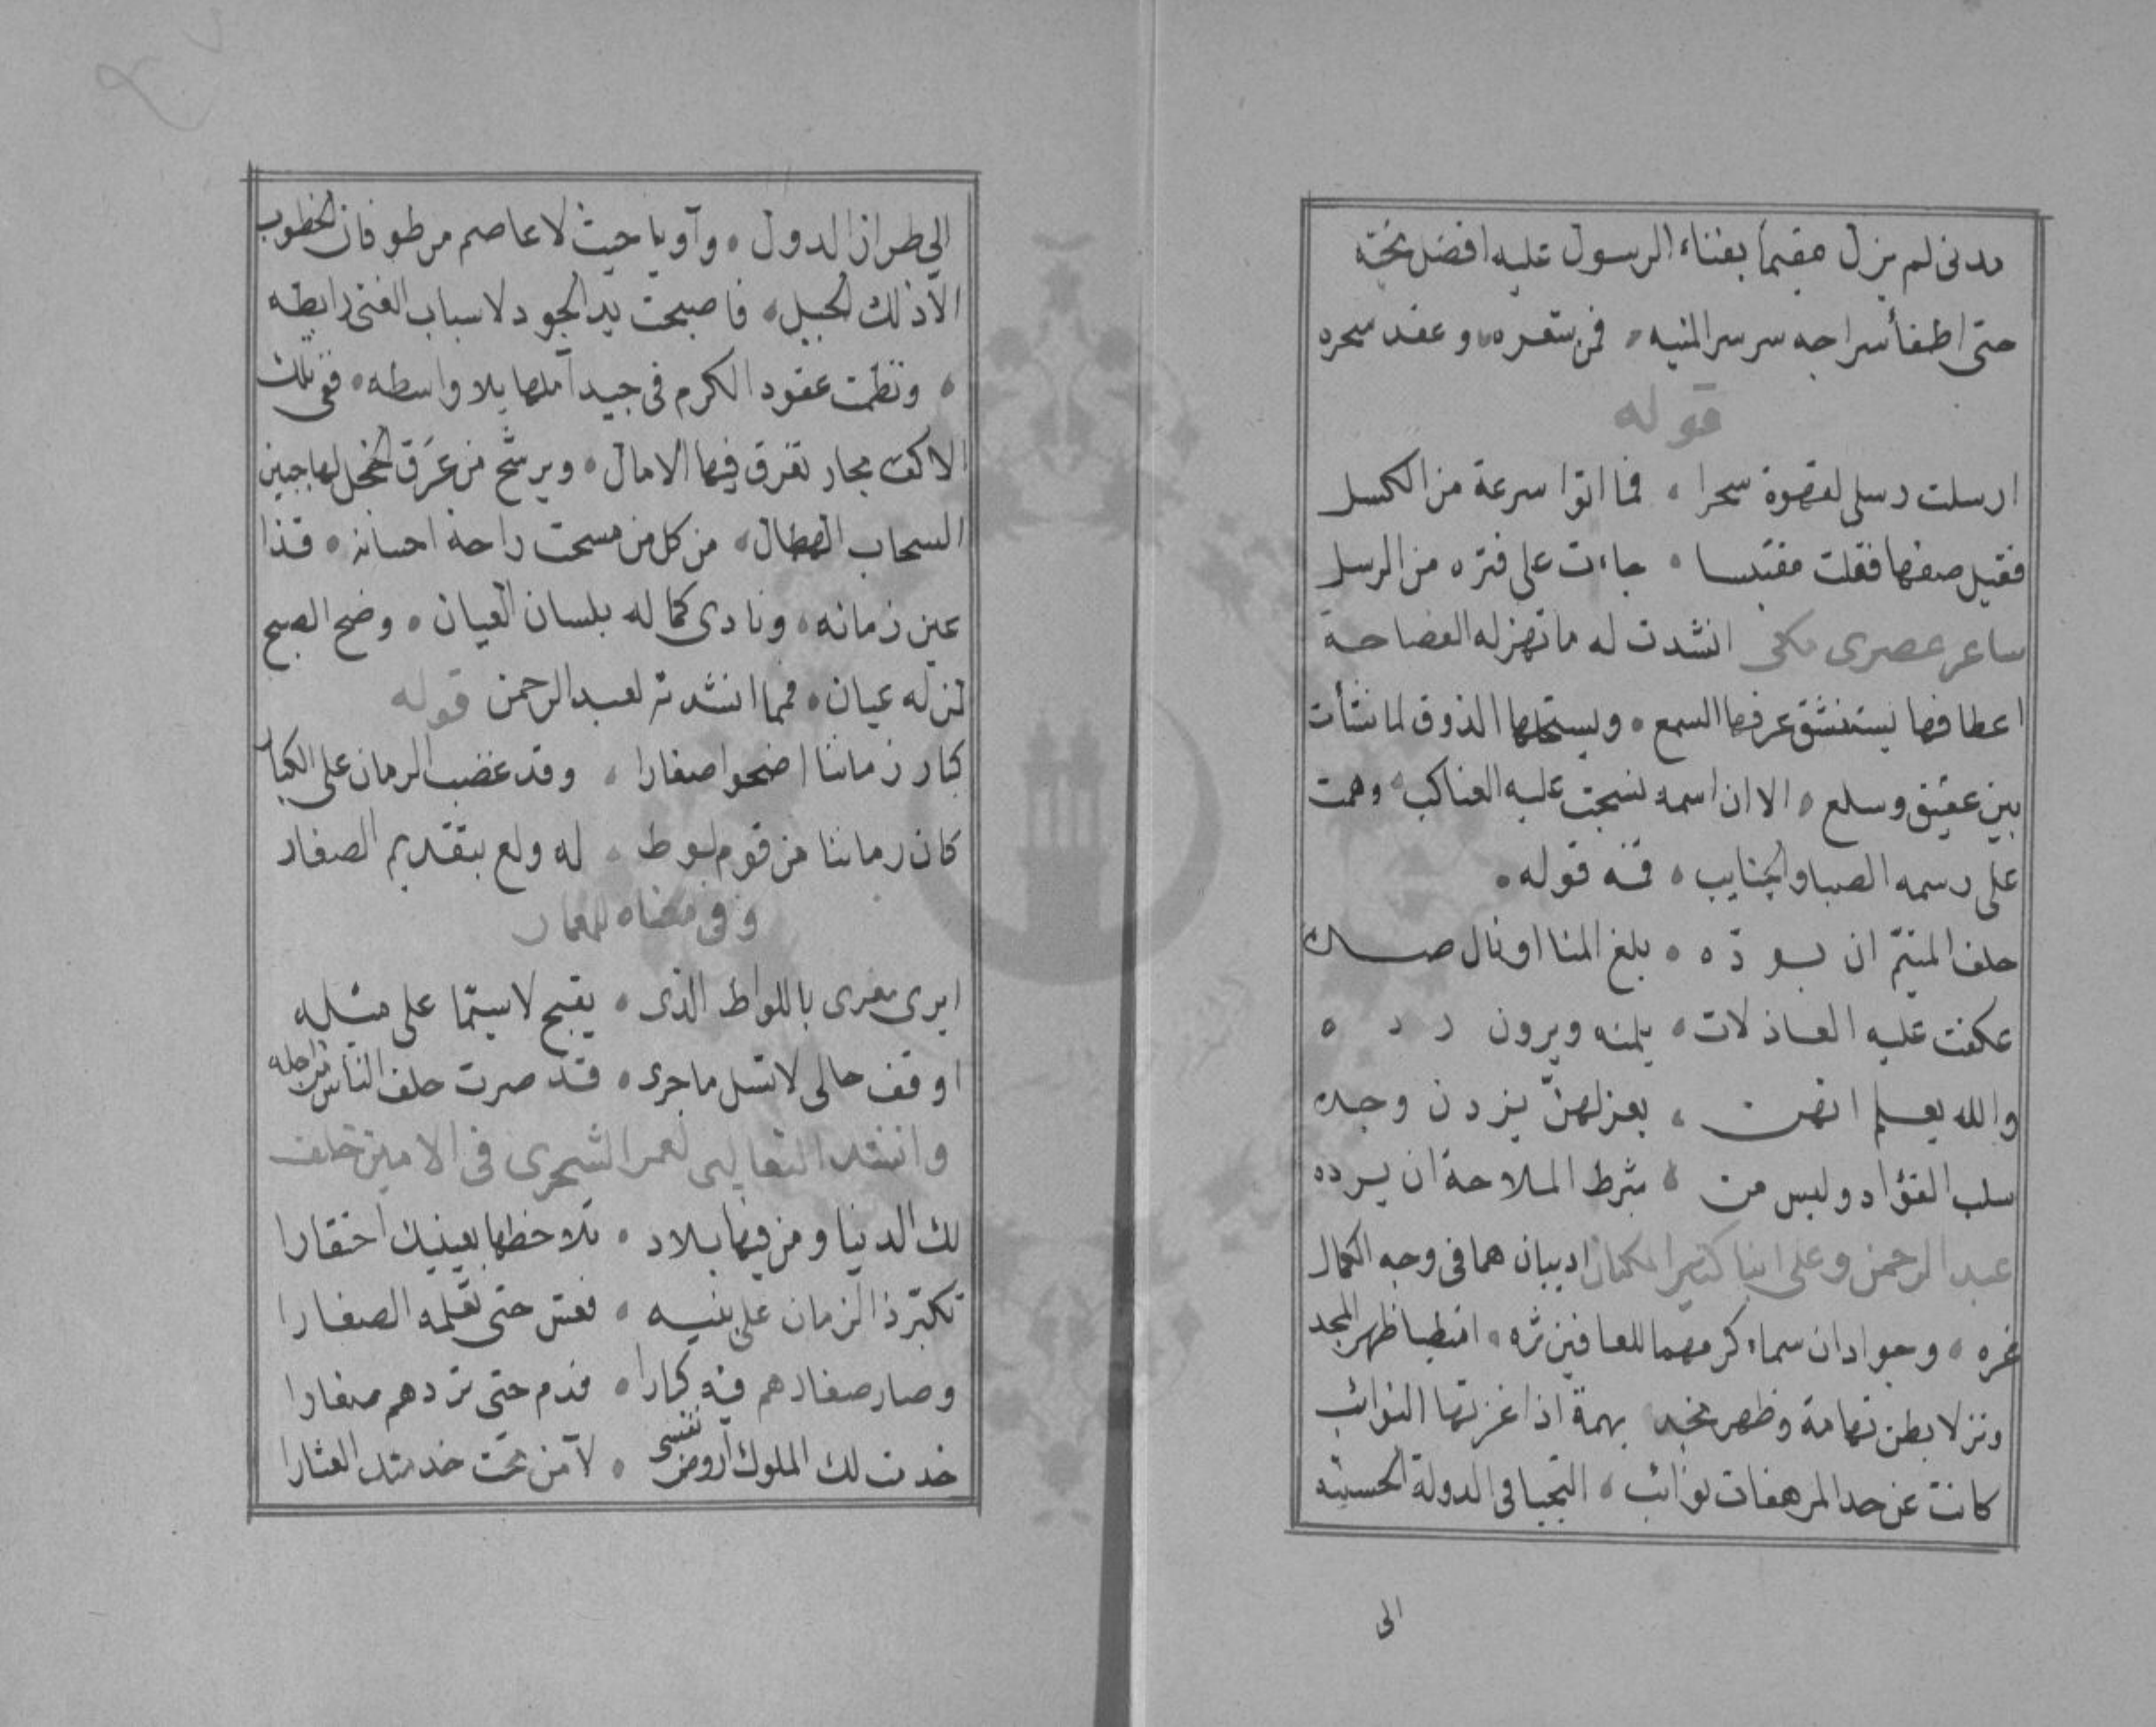 مدنى لم يزل مقيما بفناء الرسول عليه افضل تحيّه
حتى اطفأ سراجه صرصر المنيه ه فمن شعره ه وعقد سحره
قوله
ارسلت رسلى لقهوة سحرا ه فما اتوا سرعة من الكسل
فقيل صفها فقلت مقتبسا ه جاءت على فتره من الرسل
شاعر عصرى مكى انشدت له ما تهز له الفصاحة
اعطافها يستنشق عرفها السمع ه ويستحليها الذوق لما نشأت
بين عقيق وسلع ه الا ان اسمه نسجت عليه العناكب ه وهمت
على رسمه الصبا والجنايب ه فمنه قوله ه
حلف المتيّم ان بودّه ه بلغ المنا او نال
عكفت عليه العاذلات ه يلمنه ويرون رده
والله يعلم انهن ه بعزلهنّ يزدن وجده
سلب الفؤاد وليس من ه شرط الملاحة ان يرده
عبد الرحمن وعلى ابنا كثير المكيان اديبان هما فى وجه الكمال
غره ه وجوادان سماء كرمهما للعافين ثره ه امتطيا ظهر المجد
ونزلا بطن تهامة وظهر نجد بهمة اذا غزتها النوائب
كانت عن حد المرهفات نوائب ه التجيا فى الدولة الحسنيه
الى
الى طراز الدول ه وآويا حيث لا عاصم من طوفان الخطوب
الّا ذلك الجبل ه فاصبحت يد الجود لاسباب الغنى رابطه
ه ونظمت عقود الكرم فى جيد آملها بلا واسطه ه ففى تلك
الاكف بحار تغرق فيها الامال ه ويرشّح من عَرَق الخجل لها جبين
السحاب الهطال ه من كل من مسحت راحة احسانه ه قذا
عين زمانه ه ونادى كماله بلسان العيان ه وضح الصبح
لمن له عيان ه فمما انشدته لعبد الرحمن قوله
كبار زماننا اضحوا صغارا ه وقد غضب الزمان على الكبار
كان زماننا من قوم لوط ه له ولع بتقديم الصغار
وفى معناه للمعمار
ايرى مغرى باللواط الذى ه يقبح لا سيّما على مثله
اوقف حالى لا تسل ما جرى ه قد صرت خلف الناس من اجله
وانشد الثعالبى لعمر الشجرى فى الامير خلف
لك الدنيا ومن فيها بلاد ه تلاحظها بعينيك احتقارا
تكبّر ذا الزمان على بنيه ه فعش حتى تعلمه الصغارا
وصار صغارهم فيه كبارا ه فدم حتى تردهم صغارا
خدمت لك الملوك اروض نفسى ه لآمن تحت خدمتك العثارا